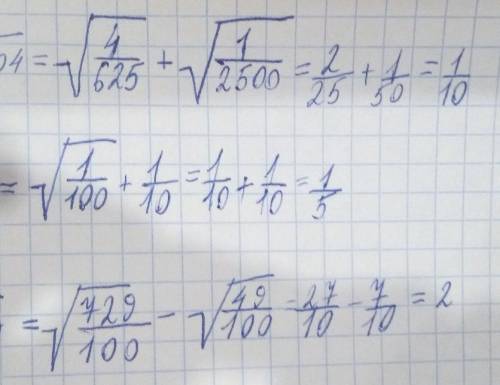 04 = √4/625 + √1/2500 = 2/25 + 1/50 = 1/10
= √1/100 + 1/10 = 1/10 + 1/10 = 1/5
= √729/100 - √49/100 = 27/10 - 7/10 = 2